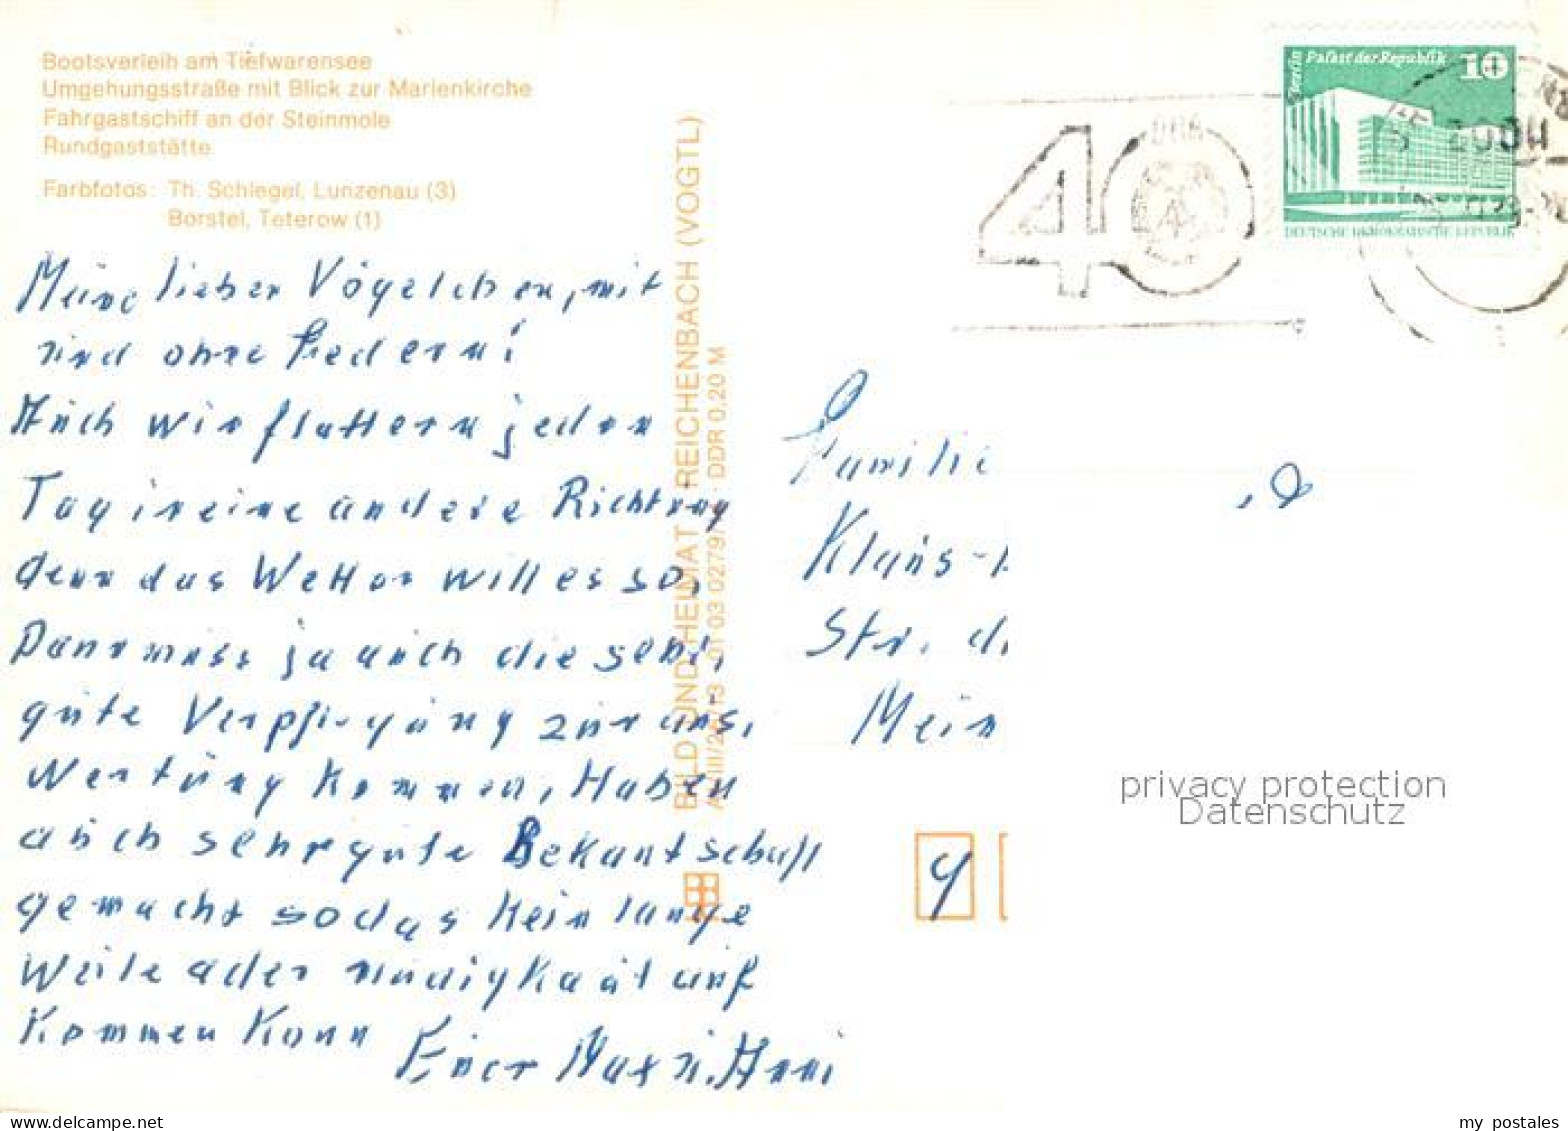 Bootsverleih am Tiefwarensee
Umgehungsstraße mit Blick zur Marienkirche
Fahrgastschiff an der Steinmole
Rundgaststätte
Farbfotos: Th. Schlegel, Lunzenau (3)
Borstel, Teterow (1)
Meine lieben Vögelchen, mit
und ohne Federn!
Auch wir flattern jeden
Tag in eine andere Richtung
denn das Wetter will es so,
Dann muss ja auch die sehr,
gute Verpflegung zur aus,
wertung kommen, Haben
auch sehr gute Bekantschaft
gemacht so das kein lange
weile oder
auf
kommen kann
Euer Max u. Anni
BILD UND HEIMAT REICHENBACH (VOGTL)
01 03 0279/ DDR 0,20 M
40
DDR
Berlin Palast der Republik 10
DEUTSCHE DEMOKRATISCHE REPUBLIK
Familie
Klaus-
Str. d.
Mein
9
privacy protection
Datenschutz
my postales